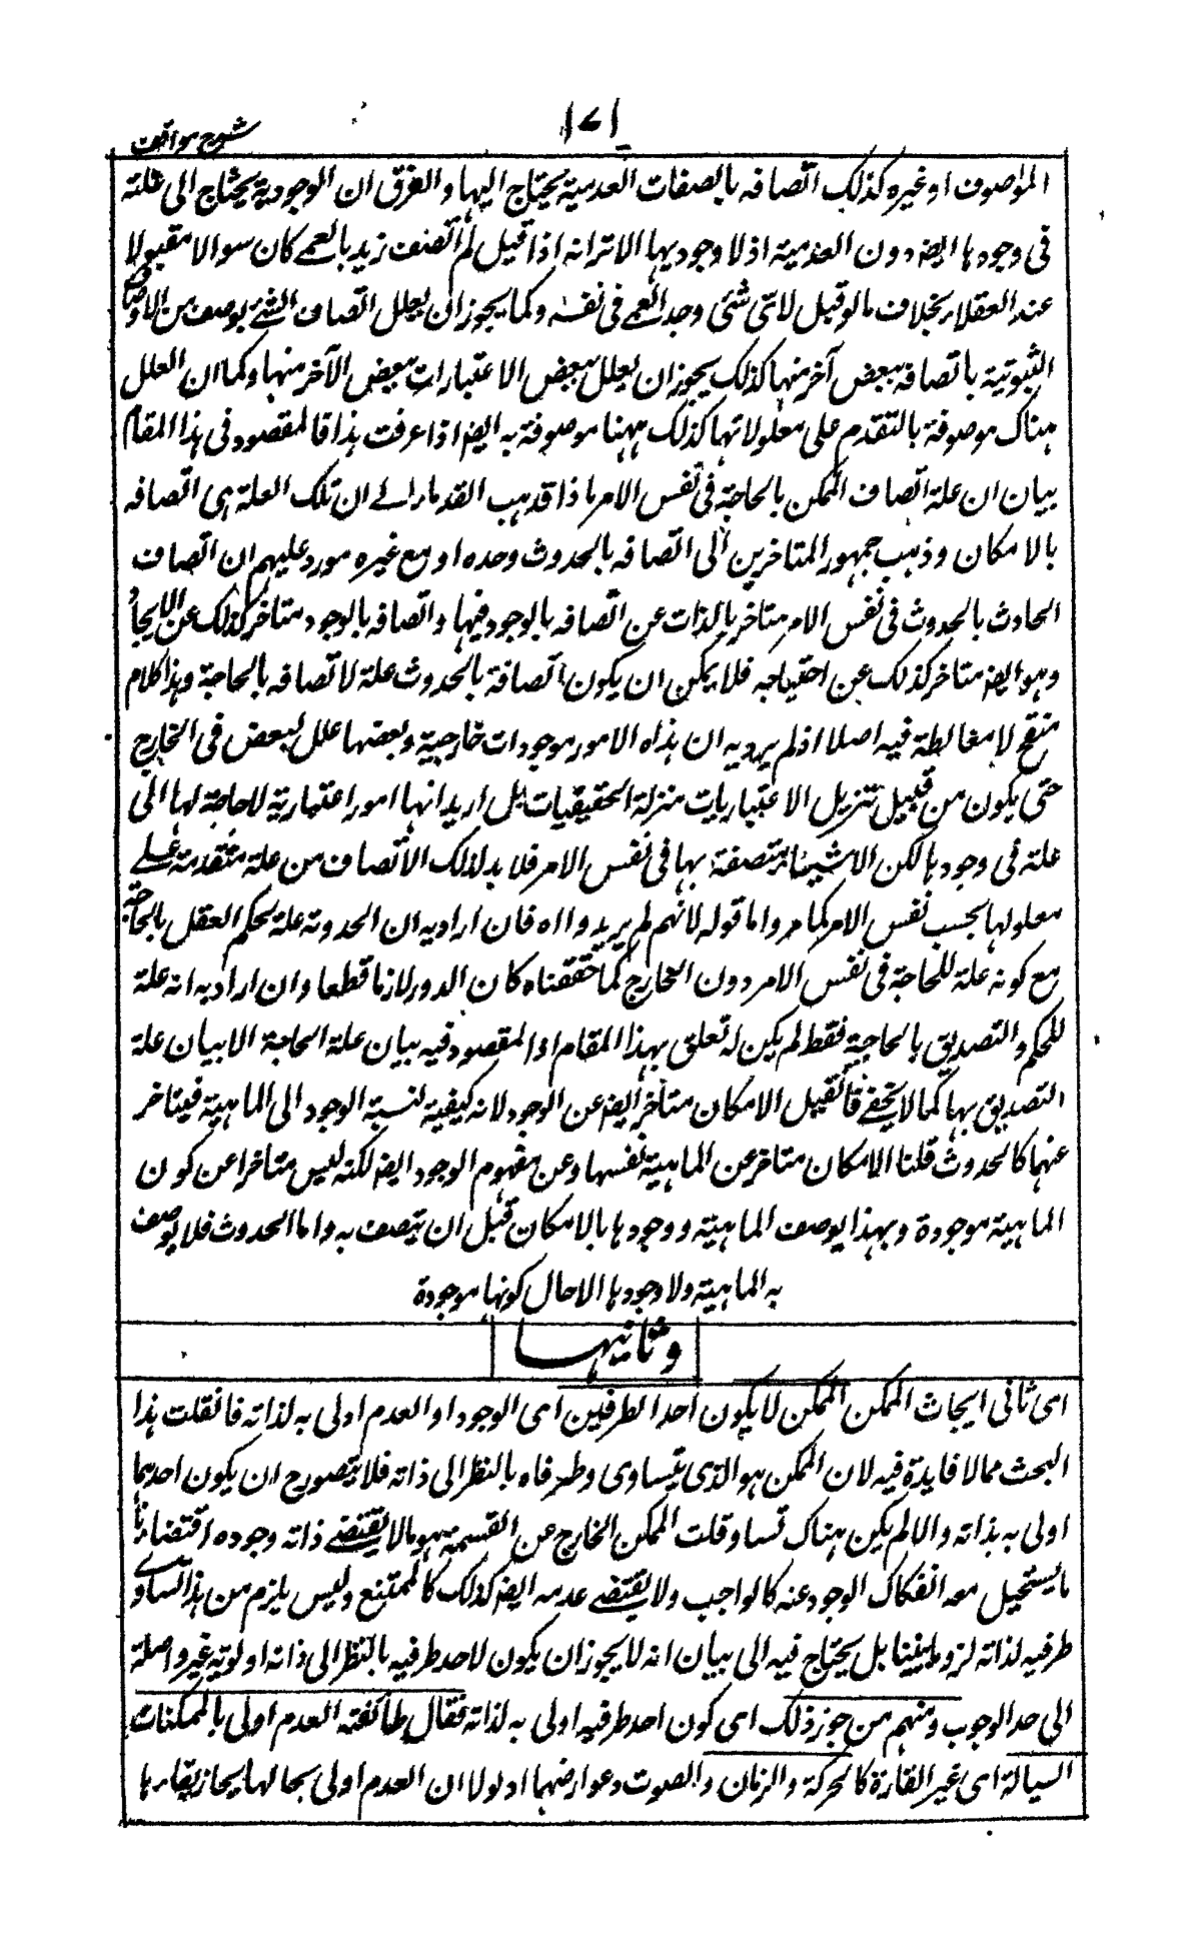 ۱۷۱
شرح مواقف
الموصوف او غيره كذلك اتصافه بالصفات العدمية يحتاج اليها والفرق ان الوجودية يحتاج الى علته
فى وجودها ايضا دون العدمية اذ لا وجود يها الا ترانه اذا قيل لم اتصف زيد بالعمے كان سوالا مقبولا
عند العقلاء بخلاف ما لو قيل لاى شئى وجد العمے فى نفسه وكما يجوز ان يعلل اتصاف الشئے بوصف من الاوصاف
الثبوتية باتصافه ببعض آخر منها كذلك يجوز ان يعلل ببعض الاعتبارات ببعض الآخر منها وكما ان العلل
هناك موصوفة بالتقدم على معلولاتها كذلك ههنا موصوفة به ايضا اذا عرفت هذا فالمقصود فى هذا المقام
بيان ان علة اتصاف الممكن بالحاجة فى نفس الامر ماذا قد هب القدماء الے ان تلك العلة هى اتصافه
بالامكان وذهب جمهور المتاخرين الى اتصافه بالحدوث وحده او مع غيره مورد عليهم ان اتصاف
الحادث بالحدوث فى نفس الامر متاخر بالذات عن اتصافه بالوجود فيها واتصافه بالوجود متاخر كذلك عن الايجاد
وهو ايضا متاخر كذلك عن احتياجه فلا يمكن ان يكون اتصافة بالحدوث علة لاتصافه بالحاجة وهذا كلام
منقح لا مغالطة فيه اصلا اذ لم يرد به ان هذاه الامور موجودات خارجية وبعضها علل لبعض فى الخارج
حتى يكون من قبيل تنزيل الاعتباريات منزلة الحقيقيات بل اريد انها امور اعتبارية لا حاجة لها الى
علة فى وجودها لكن الاشياء متصفة بها فى نفس الامر فلا بد لذلك الاتصاف من علة متقدمة علے
معلولها بحسب نفس الامر كما مر واما قوله لانهم لم يريدوا اه فان اراد به ان الحدوثه علة لحكم العقل بالحاجة
مع كونه علة للحاجة فى نفس الامر دون الخارج كما حققناه كان الدور لازما قطعا وان اراد به انه علة
للحكم والتصديق بالحاجة فقط لم يكن له تعلق بهذا المقام اذ المقصود فيه بيان علة الحاجة الا بيان علة
التصديق بها كما لا يخفے فان قيل الامكان متاخر ايضا عن الوجود لانه كيفية لنسبة الوجود الى الماهية فيتاخر
عنها كالحدوث قلنا الامكان متاخر عن الماهية نفسها وعن مفهوم الوجود ايضا لكنه ليس متاخرا عن كون
الماهية موجودة وبهذا يوصف الماهية ووجودها بالامكان قبل ان يتصف به واما الحدوث فلا يوصف
به الماهية ولا وجودها الا حال كونها موجودة
وثانيها
اى ثانى ابحاث الممكن الممكن لا يكون احد الطرفين اى الوجود او العدم اولى به لذاته فان قلت هذا
البحث مما لا فايدة فيه لان الممكن هو الذى يتساوى وطرفاه بالنظر الى ذاته فلا يتصور ح ان يكون احدهما
اولى به بذاته والا لم يكن هناك تساو قلت الممكن الخارج عن القسمة هو ما لا يقتضے ذاته وجوده اقتضاء تاما
ما يستحيل معه انفكاك الوجود عنه كالواجب ولا يقتضے عدمه ايضا كذلك كالممتنع وليس يلزم من هذا تساوى
طرفيه لذاته لزوما بينا بل يحتاج فيه الى بيان انه لا يجوز ان يكون لاحد طرفيه بالنظر الى ذاته اولوية غير واصلة
الى حد الوجوب ومنهم من جوز ذلك اى كون احد طرفيه اولى به لذاته فقال طائفته العدم اولى بالممكنات
السيالة اى غير القارة كالحركة والزمان والصوت وعوارضهما اذ لولا ان العدم اولى بحالها يجاز بقاءها